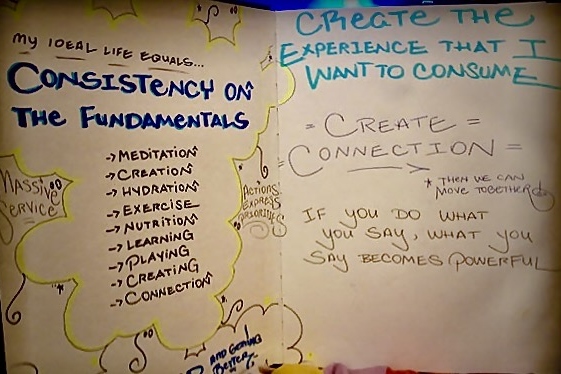 my IDEAL LIFE EQUALS...
CONSISTENCY ON
THE FUNDAMENTALS
→MEDITATION
→CREATION
→HYDRATION
→EXERCISE
→NUTRITION
→LEARNING
→PLAYING
→CREATING
→CONNECTION
MASSIVE
SERVICE
ACTIONS
EXPRESS
PRIORITIES
AND GOING
BETTER
CREATE THE
EXPERIENCE THAT I
WANT TO CONSUME
= CREATE =
CONNECTION =
* THEN WE CAN
MOVE TOGETHER
IF YOU DO WHAT
YOU SAY, WHAT YOU
SAY BECOMES POWERFUL